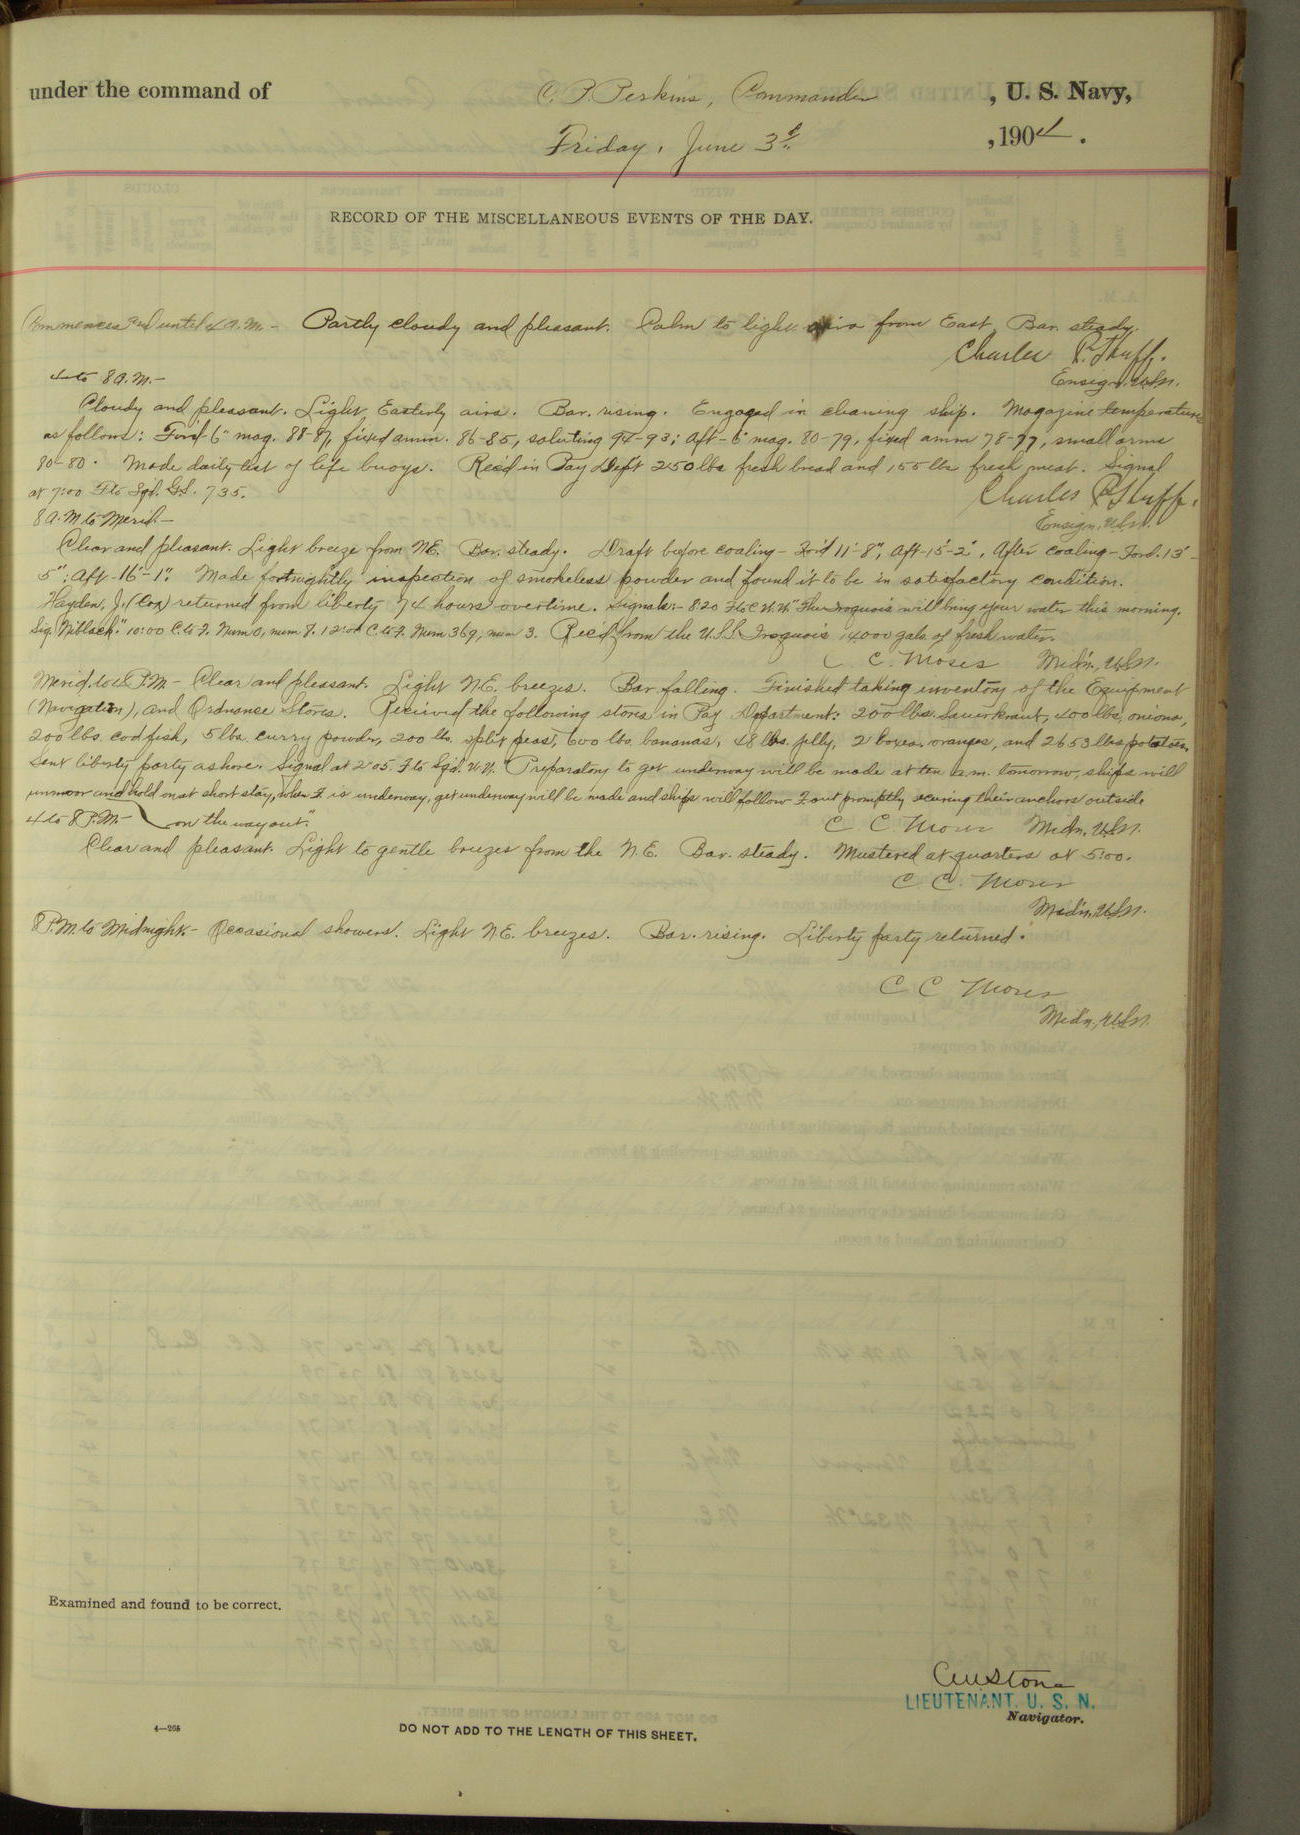 under the command of C. P. Perkins, Commander, U. S. Navy,
Friday, June 3d, 1904.
RECORD OF THE MISCELLANEOUS EVENTS OF THE DAY.
Commences and until 4 A.M.- Partly cloudy and pleasant. Calm to light airs from East. Bar. steady.
Charles
Ensign, U.S.N.
4 to 8 A.M.-
Cloudy and pleasant. Light Easterly airs. Bar. rising. Engaged in cleaning ship. Magazine temperatures
as follows: For'd 6" mag. 88-87, fixed amm. 86-85, saluting 94-93; Aft- 6" mag. 80-79, fixed amm 78-77, small arms
80-80. Made daily test of life buoys. Rec'd in Pay Dep't 250 lbs fresh bread and 155 lbs fresh meat. Signal
at 7:00 F to Sqd. G.S. 735.
Charles
8 A.M. to Merid.-
Ensign, U.S.N.
Clear and pleasant. Light breeze from NE. Bar. steady. Draft before coaling- For'd 11'-8", Aft-15'-2". After coaling- Ford. 13'-
5"; Aft-16'-1". Made fortnightly inspection of smokeless powder and found it to be in satisfactory condition.
Hayden, J. (Cox) returned from liberty 74 hours overtime. Signals:- 8:20 F to C. W.W. "The Iroquois will bring your water this morning.
Sig. Niblack." 10:00 C. to F. Num 0, num 7. 12:00 C. to F. Num 369, num 3. Rec'd from the U.S.S. Iroquois 14000 gals. of fresh water.
C. C. Moses Mid'n, U.S.N.
Merid. to 4 P.M.- Clear and pleasant. Light N.E. breezes. Bar. falling. Finished taking inventory of the Equipment
(Navigation), and Ordnance Stores. Received the following stores in Pay Department: 200 lbs. Sauerkraut, 400 lbs, onions,
200 lbs. codfish, 5 lbs. curry powder, 200 lbs. split peas, 600 lbs. bananas, 48 lbs. jelly, 2 boxes oranges, and 2653 lbs potatoes.
Sent liberty party ashore. Signal at 2:05 F to Sqd. W.W. "Preparatory to get underway will be made at ten a.m. tomorrow, ships will
unmoor and hold on at short stay, when F is underway, get underway will be made and ships will follow F out promptly securing their anchors outside
on the way out."
C. C. Moses Mid'n, U.S.N.
4 to 8 P.M.-
Clear and pleasant. Light to gentle breezes from the N.E. Bar. steady. Mustered at quarters at 5:00.
C. C. Moses
Mid'n, U.S.N.
8 P.M. to Midnight.- Occasional showers. Light N.E. breezes. Bar. rising. Liberty party returned.
C C Moses
Mid'n, U.S.N.
Examined and found to be correct.
CM Stone
LIEUTENANT, U. S. N.
Navigator.
4—265
DO NOT ADD TO THE LENGTH OF THIS SHEET.